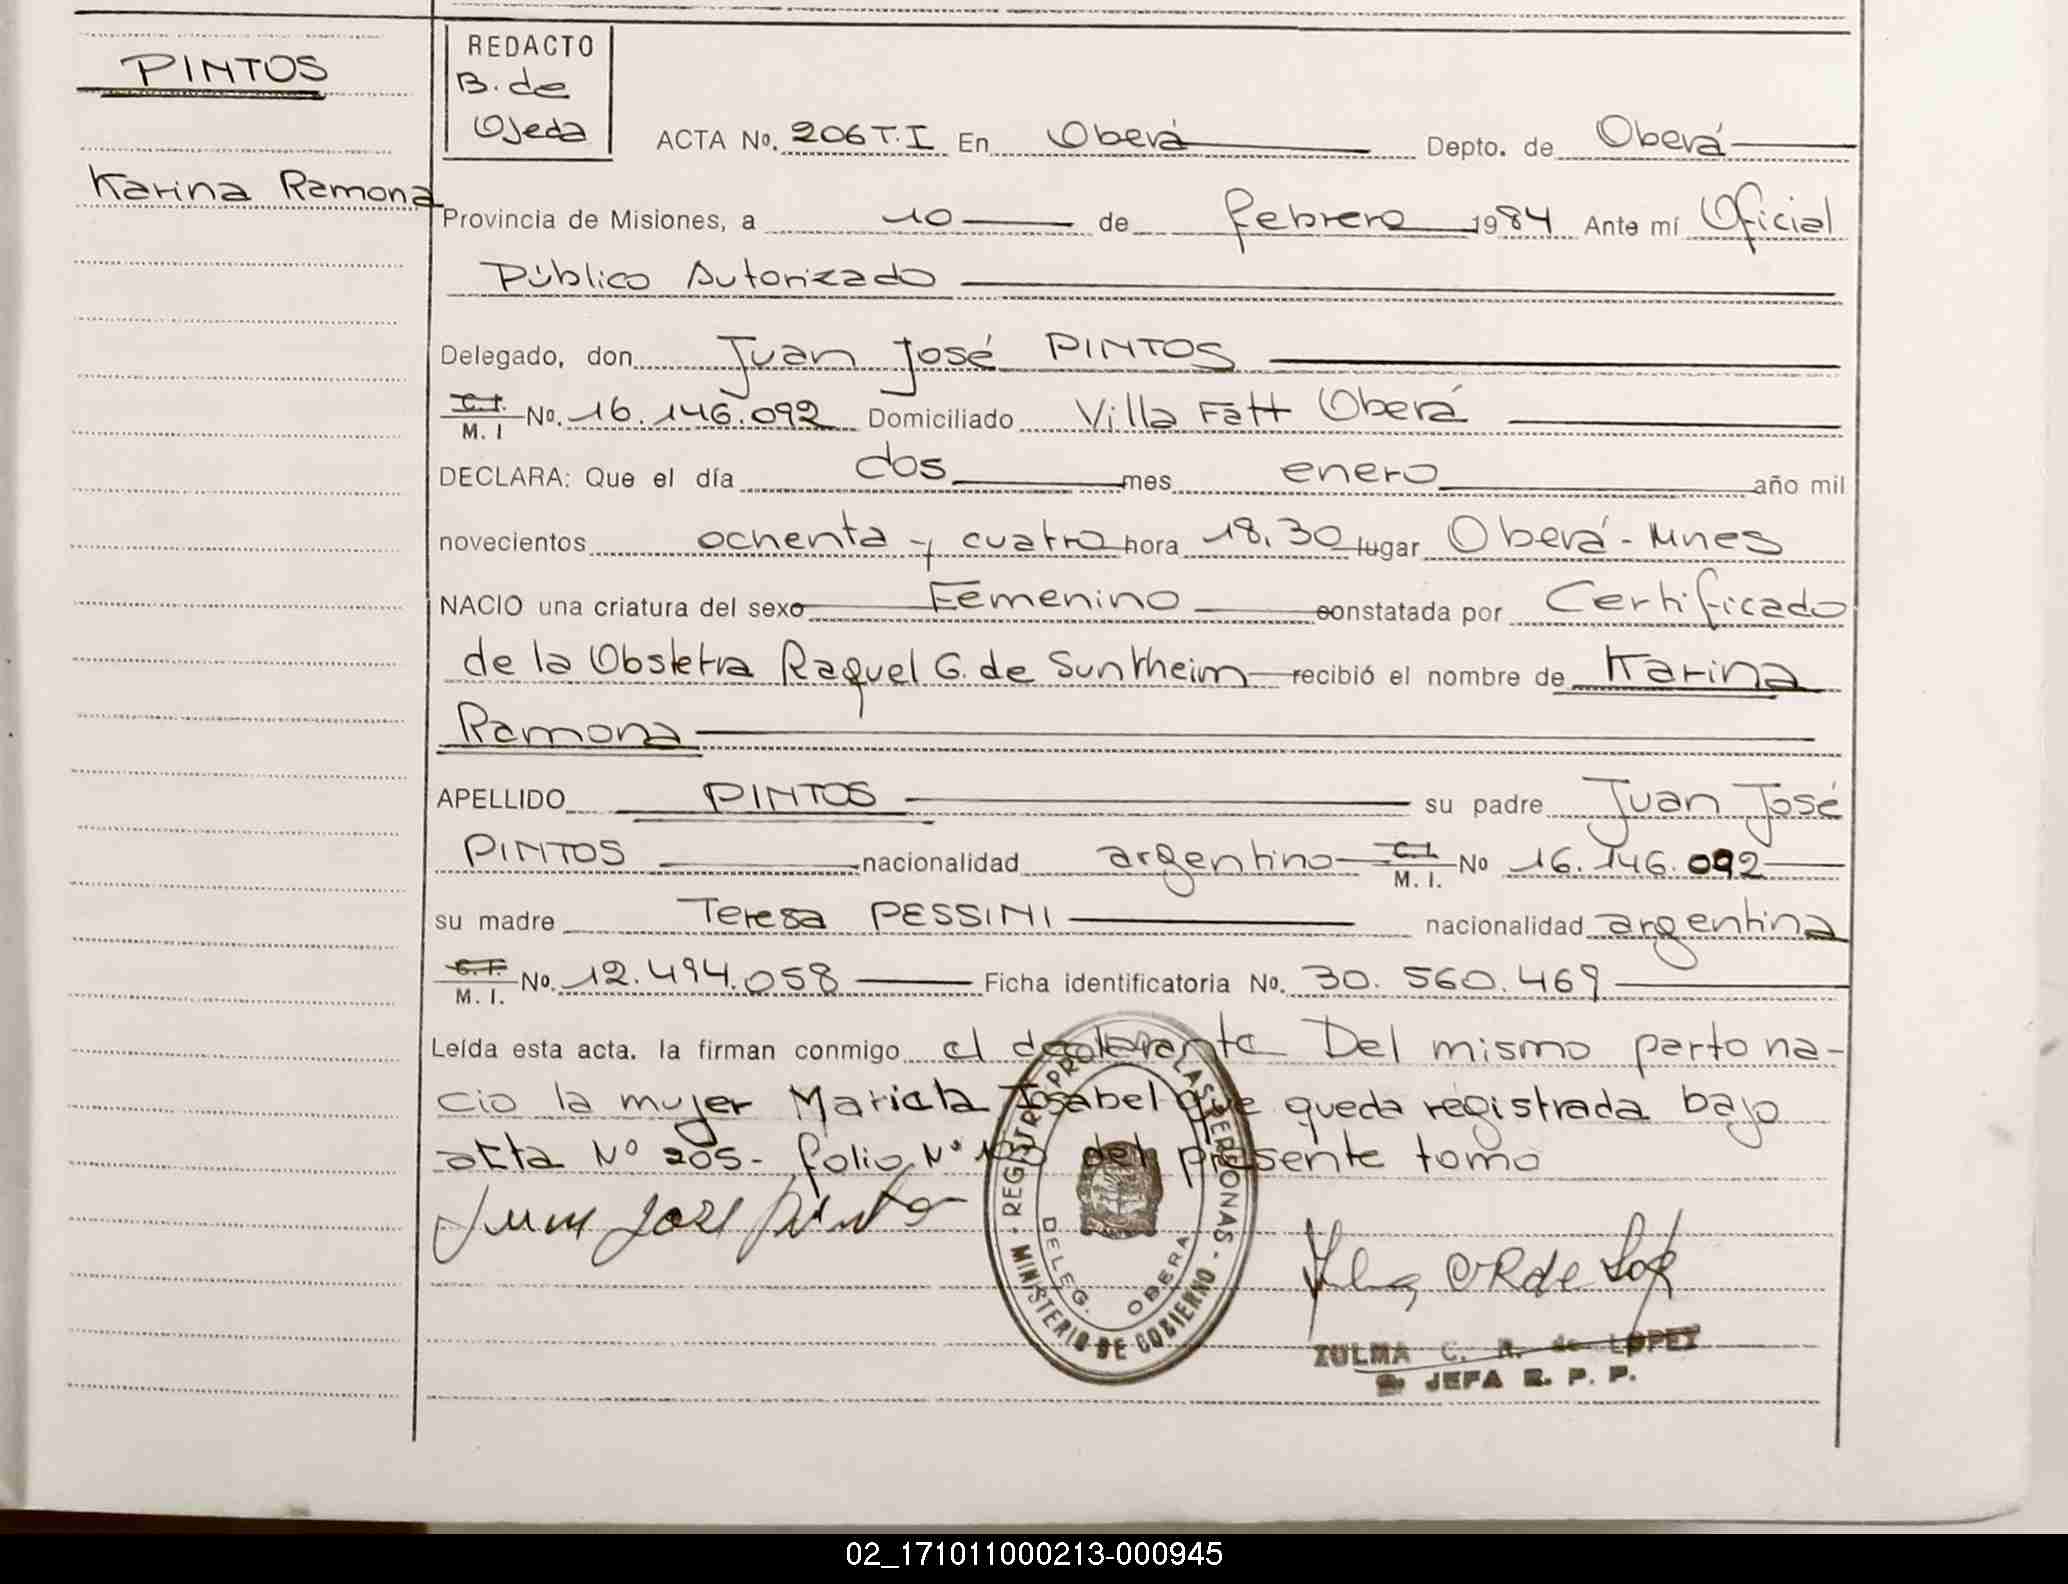 PINTOS
Karina Ramona
REDACTO
B. de
Ojeda
ACTA No. 206 T.I En Oberá Depto. de Oberá
Provincia de Misiones, a 10 de febrero 1984 Ante mí Oficial
Público Autorizado
Delegado, don Juan José PINTOS
C.I. M. I No. 16.146.092 Domiciliado Villa Fatt Oberá
DECLARA: Que el día dos mes enero año mil
novecientos ochenta y cuatro hora 18,30 lugar Oberá - Mnes
NACIO una criatura del sexo Femenino constatada por Certificado
de la Obstetra Raquel G. de Suntheim recibió el nombre de Karina
Ramona
APELLIDO PINTOS su padre Juan José
PINTOS nacionalidad argentino C.I. M. I. No 16.146.092
su madre Teresa PESSINI nacionalidad argentina
C.I. M. I. No. 12.494.058 Ficha identificatoria No. 30.560.469
Leída esta acta. la firman conmigo el declarante Del mismo parto na-
cio la mujer Mariela Isabel que queda registrada bajo
acta Nº 205 - folio Nº del presente tomo
Juan José Pintos
REGISTRO PROV. LAS PERSONAS - MINISTERIO DE GOBIERNO -
DELEG. OBERA
ZULMA C. R. de LOPEZ
JEFA R. P. P.
02_171011000213-000945